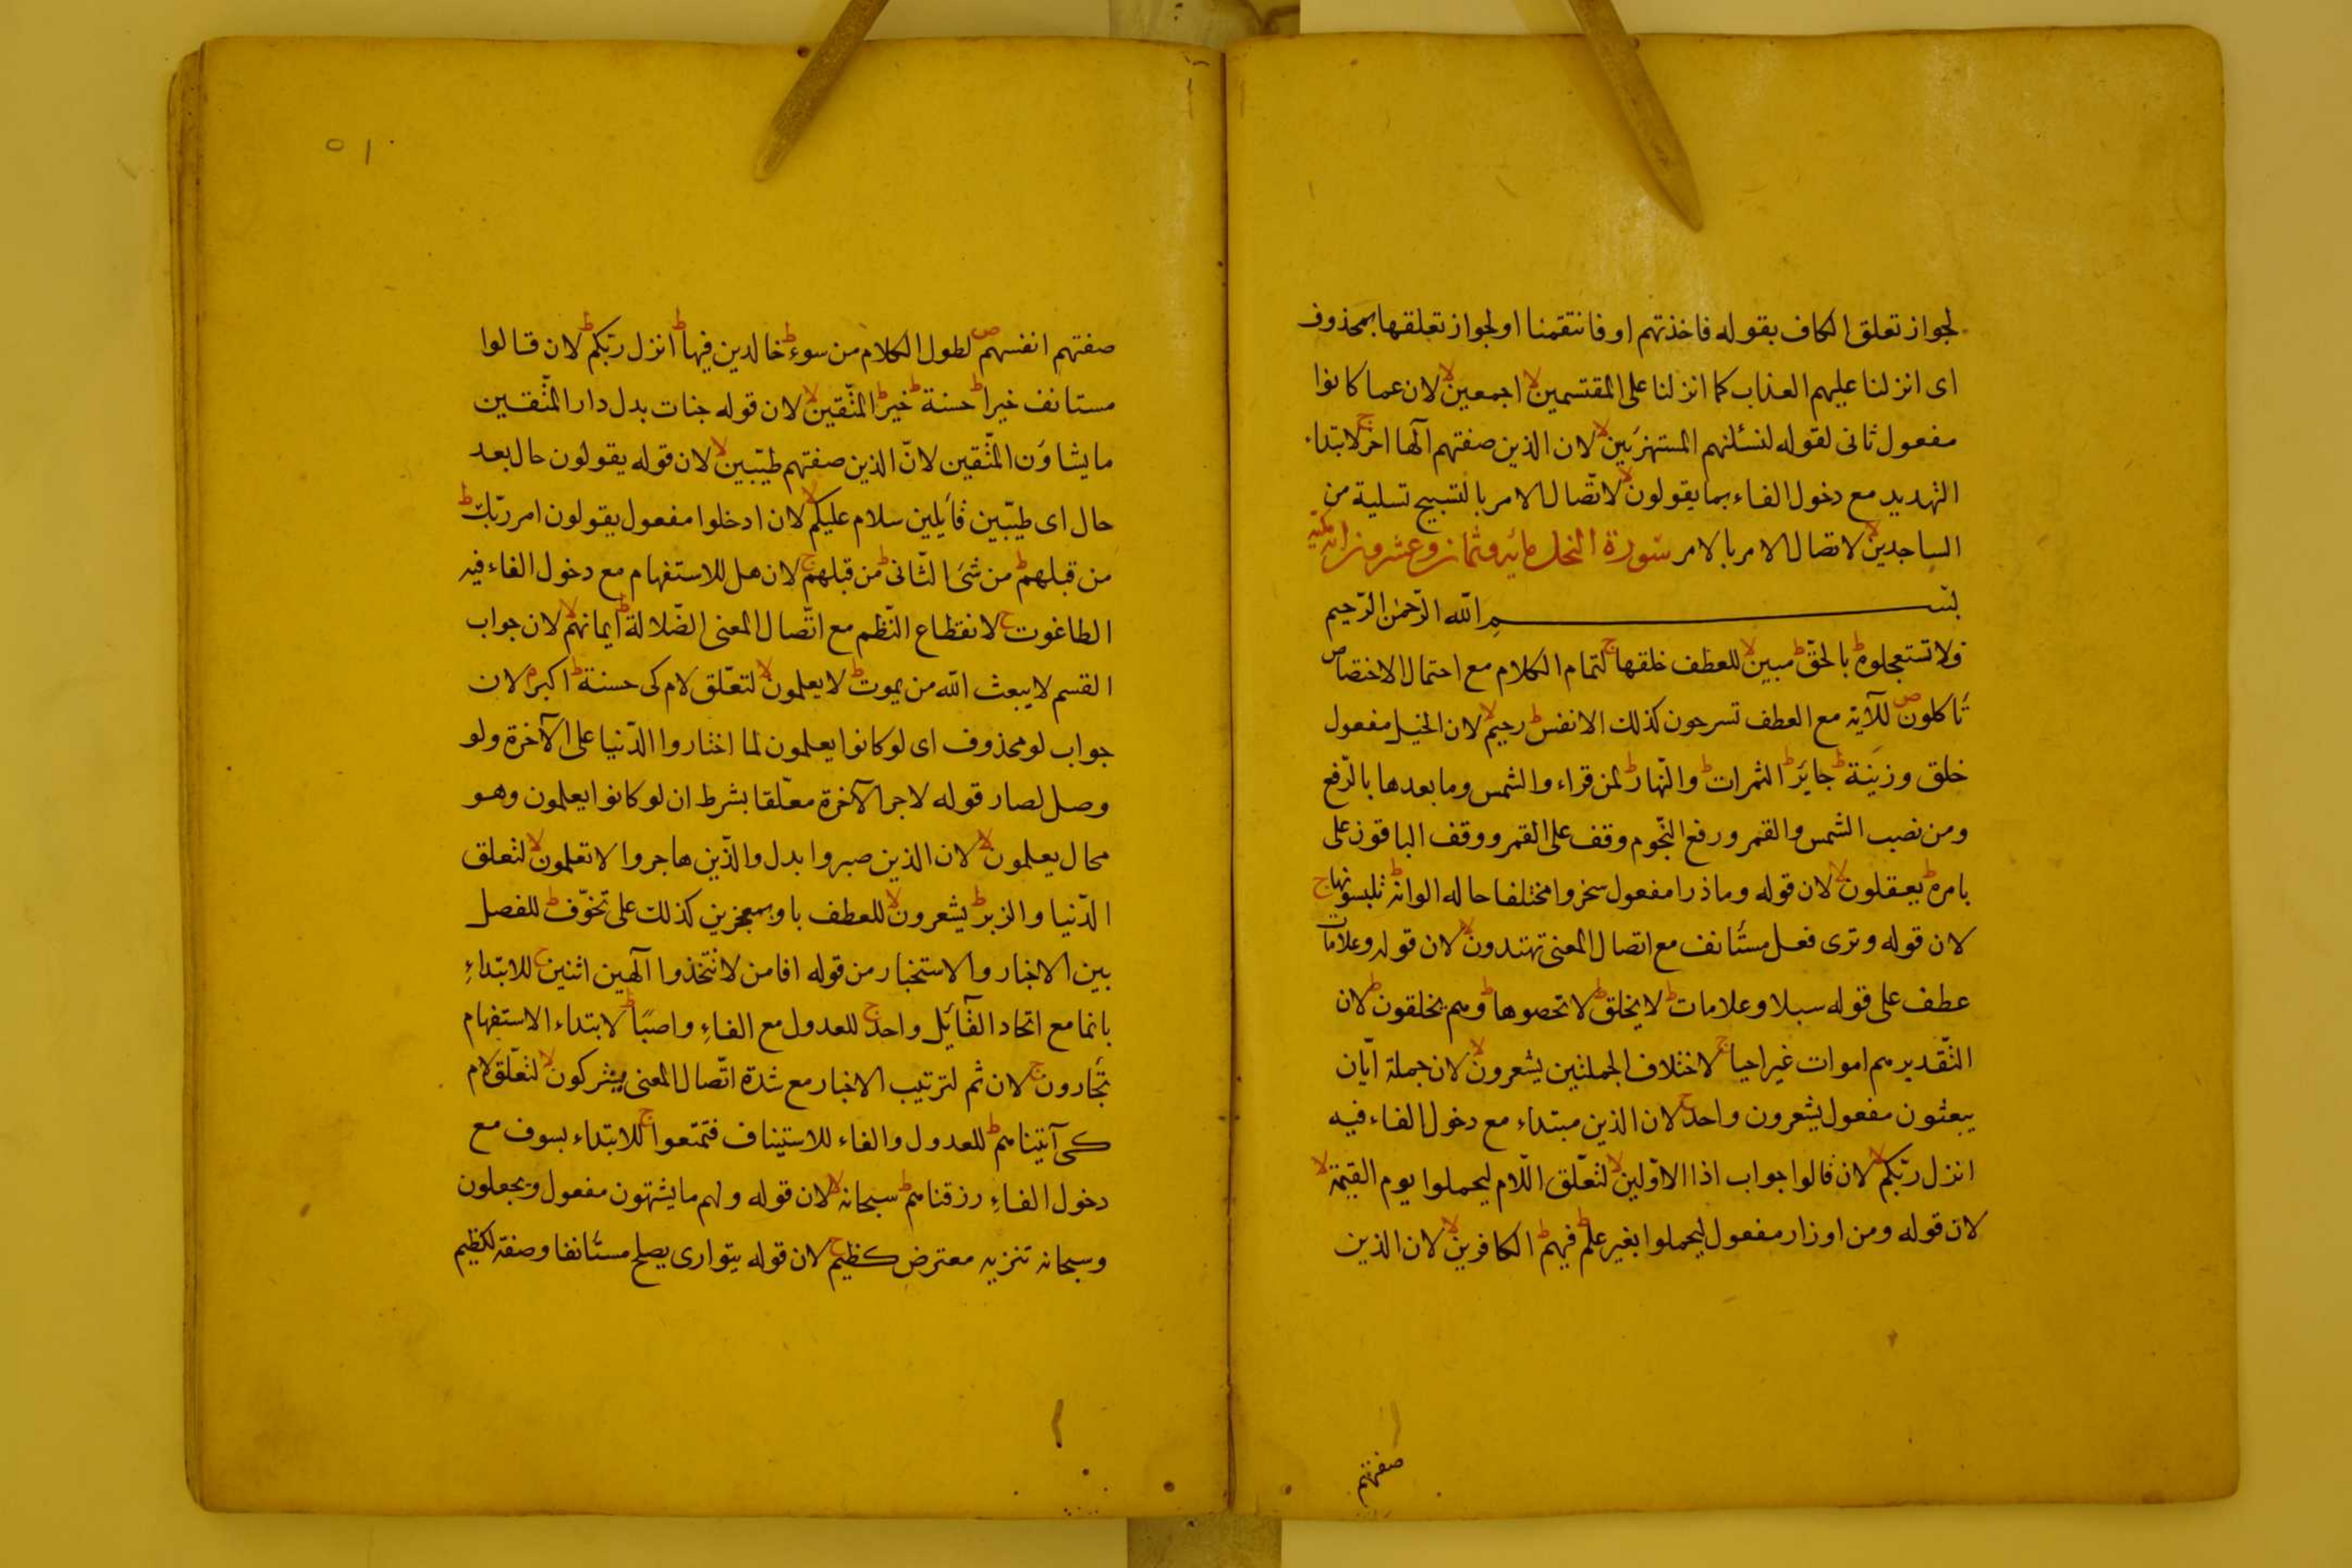 لجواز تعلق الكاف بقوله فاخذتهم او فانتقمنا او لجواز تعلقها بمحذوف
اى انزلنا عليهم العذاب كما انزلنا على المقتسمين لا اجمعين لا لان عما كانوا
مفعول ثانى لقوله لنسئلنهم المستهزئين لا لان الذين صفتهم آلها اخر ج لابتداء
التهديد مع دخول الفاء بما يقولون لا لاتصال الامر بالتسبيح تسلية من
الساجدين لا لاتصال الامر بالامر سورة النحل مائه وثمان وعشرون اية مكيه
بسم الله الرحمن الرحيم
فلا تستعجلوه ط بالحق ط مبين لا للعطف خلقها ج لتمام الكلام مع احتمال الاختصاص
تاكلون ص للآية مع العطف تسرحون كذلك الانفس ط رحيم لا لان الخيل مفعول
خلق وزينة ط جائر ط الثمرات ط والنهار ط لمن قراء والشمس وما بعدها بالرفع
ومن نصب الشمس والقمر ورفع النجوم وقف على القمر ووقف الباقون على
بامره ط يعقلون لا لان قوله وماذرا مفعول سخر ومختلفا حا له الوانه ط تلبسونها ج
لان قوله وترى فعل مستأنف مع اتصال المعنى تهتدون لا لان قوله وعلامات
عطف على قوله سبلا وعلامات ط لا يخلق ط لا تحصوها ط وهم يخلقون ط لان
التقدير هم اموات غير احيا ج لاختلاف الجملتين يشعرون لا لان جملة ايّان
يبعثون مفعول يشعرون واحد ج لان الذين مبتداء مع دخول الفاء فيه
انزل ربكم لا لان قالوا جواب اذا الاوّلين لا لتعلّق اللّام ليحملوا يوم القيمة لا
لان قوله ومن اوزار مفعول ليحملوا بغير علم ط فيهم ط الكافرين لا لان الذين
صفتهم
صفتهم انفسهم ص لطول الكلام من سوء ط خالدين فيها ط انزل ربّكم ط لان قالوا
مستانف خيرا ط حسنة ط خير ط المتّقين لا لان قوله جنات بدل دار المتّقين
ما يشاؤن المتّقين لانّ الذين صفتهم طيّبين لا لان قوله يقولون حال بعد
حال اى طيّبين قايلين سلام عليكم لا لان ادخلوا مفعول يقولون امر ربّك ط
من قبلهم ط من شئ الثّانى ط من قبلهم ج لان هل للاستفهام مع دخول الفاء فيه
الطاغوت ج لانقطاع النّظم مع اتّصال المعنى الضّلالة ط ايمانهم لا لان جواب
القسم لا يبعث الله من يموت ط لا يعلمون لا لتعلّق لام كى حسنة ط اكبر م لان
جواب لو محذوف اى لو كانوا يعلمون لما اختاروا الدّنيا على الآخرة ولو
وصل لصار قوله لاجر الآخرة معلّقا بشرط ان لو كانوا يعلمون وهو
محال يعلمون لا لان الذين صبروا بدل والذّين هاجروا لا تعلمون لا لتعلق
الدّنيا والزبر ط يشعرون لا للعطف باو بمعجزين كذلك على تخوّف ط للفصل
بين الاخبار والاستخبار من قوله افامن لا تتّخذوا آلهين اثنين ج للابتداءِ
بانما مع اتحاد القآئل واحد ج للعدول مع الفاءِ واصبًا ط لابتداء الاستفهام
تجأرون ج لان ثم لترتيب الاخبار مع شدة اتّصال المعنى يشركون لا لتعلّق لام
كى آتيناهم ط للعدول والفاء للاستيناف فتمتعوا ج للابتداء بسوف مع
دخول الفاءِ رزقناهم ط سبحانه لا لان قوله ولهم ما يشتهون مفعول ويجعلون
وسبحانه تنزيه معترض كظيم ج لان قوله يتوارى يصلح مستأنفا وصفة لكظيم